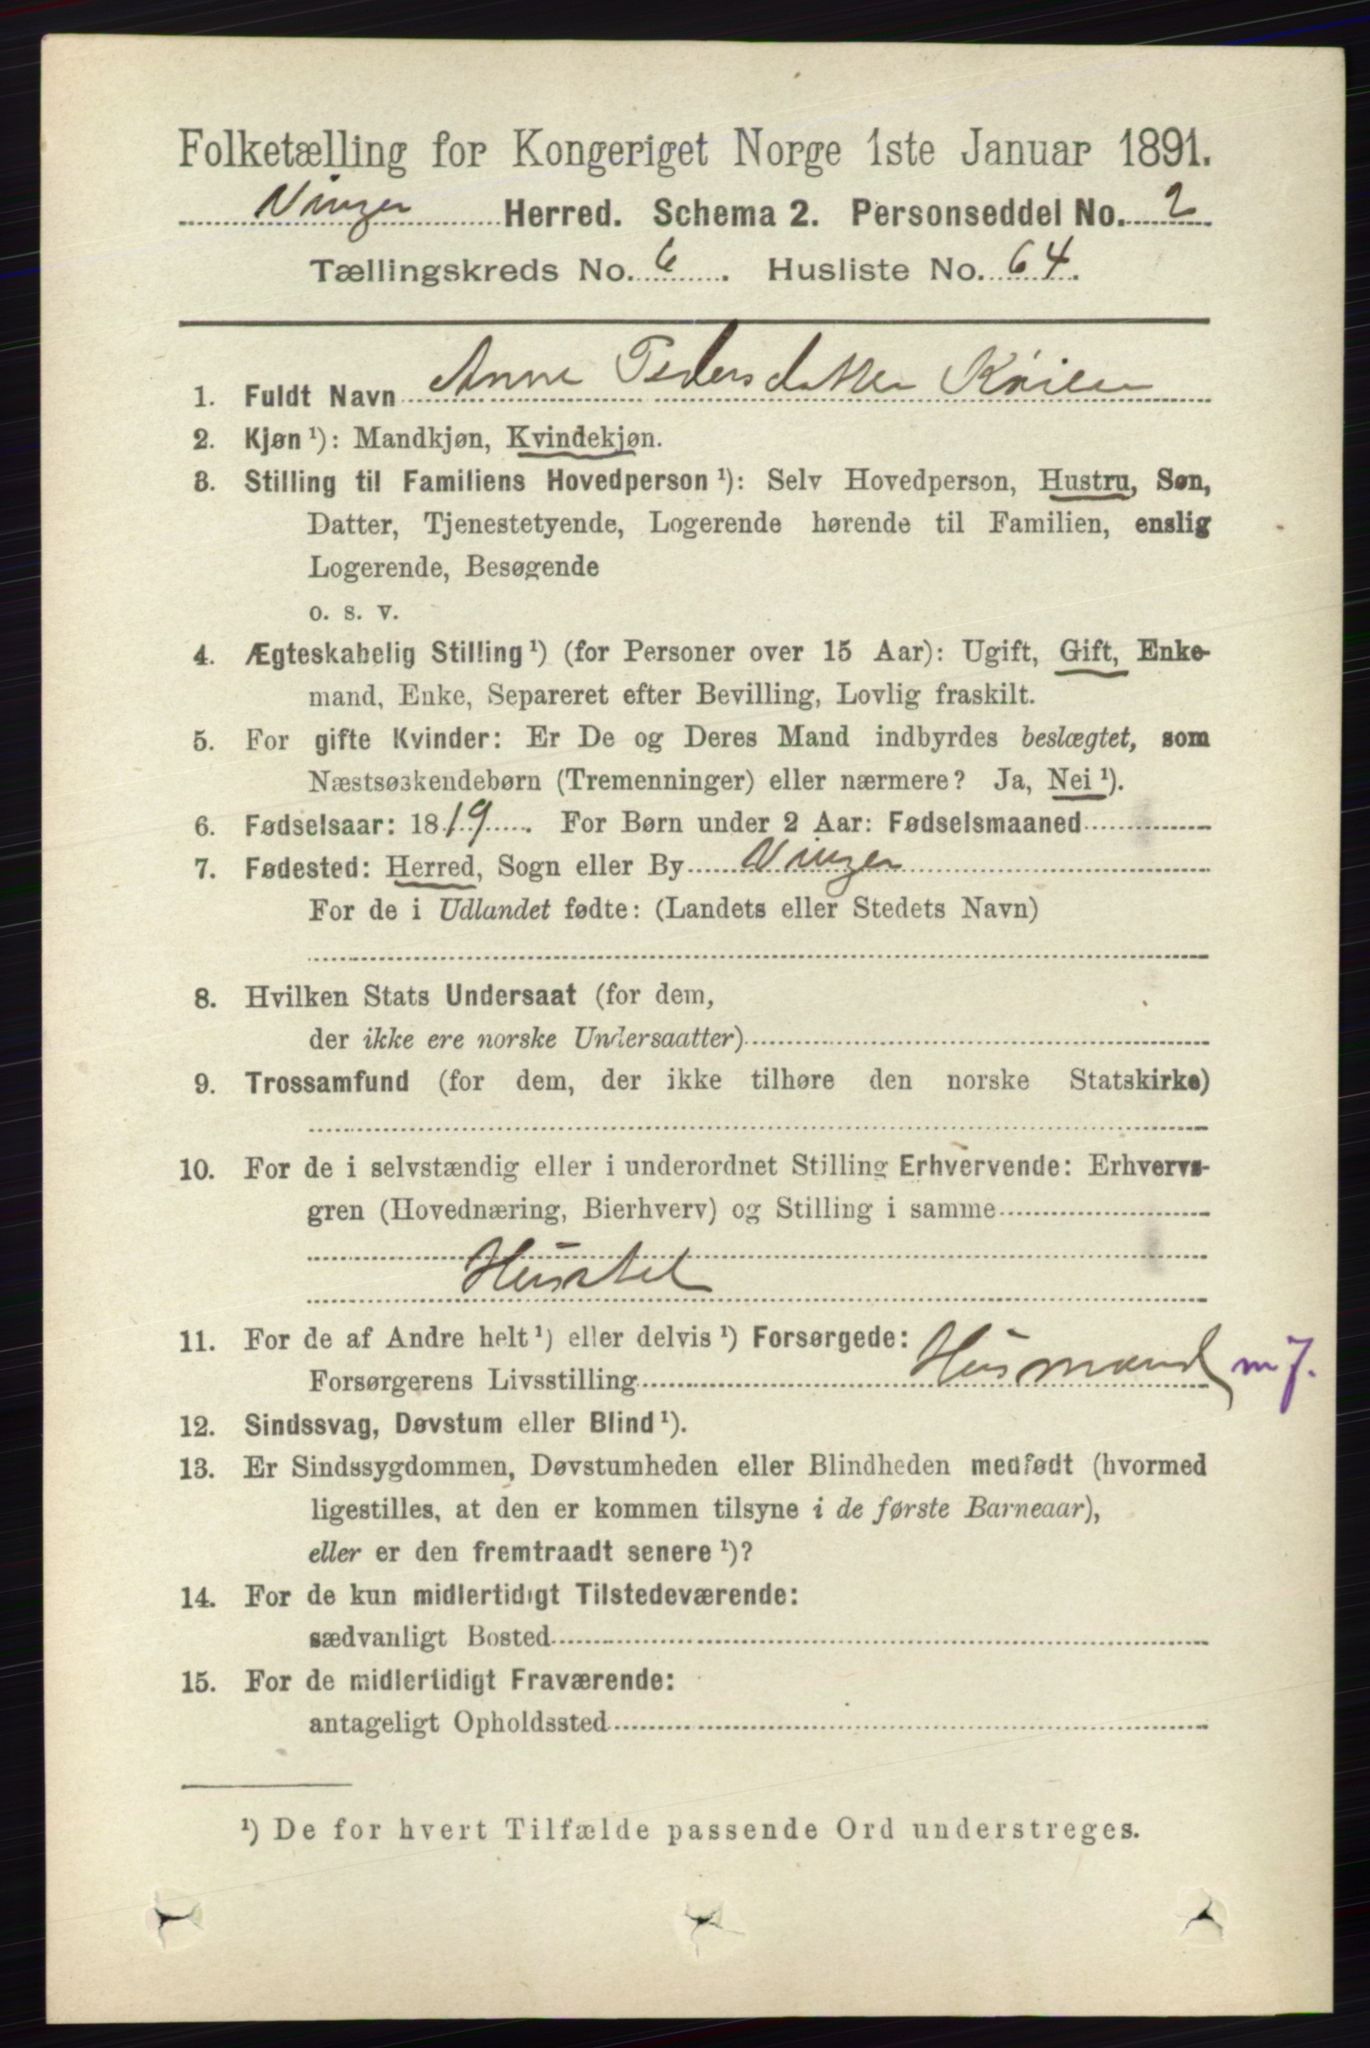 Folketælling for Kongeriget Norge 1ste Januar 1891.
Vinger Herred. Schema 2. Personseddel No. 2
Tællingskreds No. 6. Husliste No. 64.
1. Fuldt Navn Anne Pedersdatter Köien
2. Kjøn ¹): Mandkjøn, Kvindekjøn.
3. Stilling til Familiens Hovedperson ¹): Selv Hovedperson, Hustru, Søn,
Datter, Tjenestetyende, Logerende hørende til Familien, enslig
Logerende, Besøgende
o. s. v.
4. Ægteskabelig Stilling ¹) (for Personer over 15 Aar): Ugift, Gift, Enke-
mand, Enke, Separeret efter Bevilling, Lovlig fraskilt.
5. For gifte Kvinder: Er De og Deres Mand indbyrdes beslægtet, som
Næstsøskendebørn (Tremenninger) eller nærmere? Ja, Nei ¹).
6. Fødselsaar: 1819. For Børn under 2 Aar: Fødselsmaaned
7. Fødested: Herred, Sogn eller By Vinger
For de i Udlandet fødte: (Landets eller Stedets Navn)
8. Hvilken Stats Undersaat (for dem,
der ikke ere norske Undersaatter)
9. Trossamfund (for dem, der ikke tilhøre den norske Statskirke)
10. For de i selvstændig eller i underordnet Stilling Erhvervende: Erhvervs-
gren (Hovednæring, Bierhverv) og Stilling i samme
Husstel
11. For de af Andre helt ¹) eller delvis ¹) Forsørgede:
Forsørgerens Livsstilling Husmand m 7.
12. Sindssvag, Døvstum eller Blind ¹).
13. Er Sindssygdommen, Døvstumheden eller Blindheden medfødt (hvormed
ligestilles, at den er kommen tilsyne i de første Barneaar),
eller er den fremtraadt senere ¹)?
14. For de kun midlertidigt Tilstedeværende:
sædvanligt Bosted
15. For de midlertidigt Fraværende:
antageligt Opholdssted
¹) De for hvert Tilfælde passende Ord understreges.